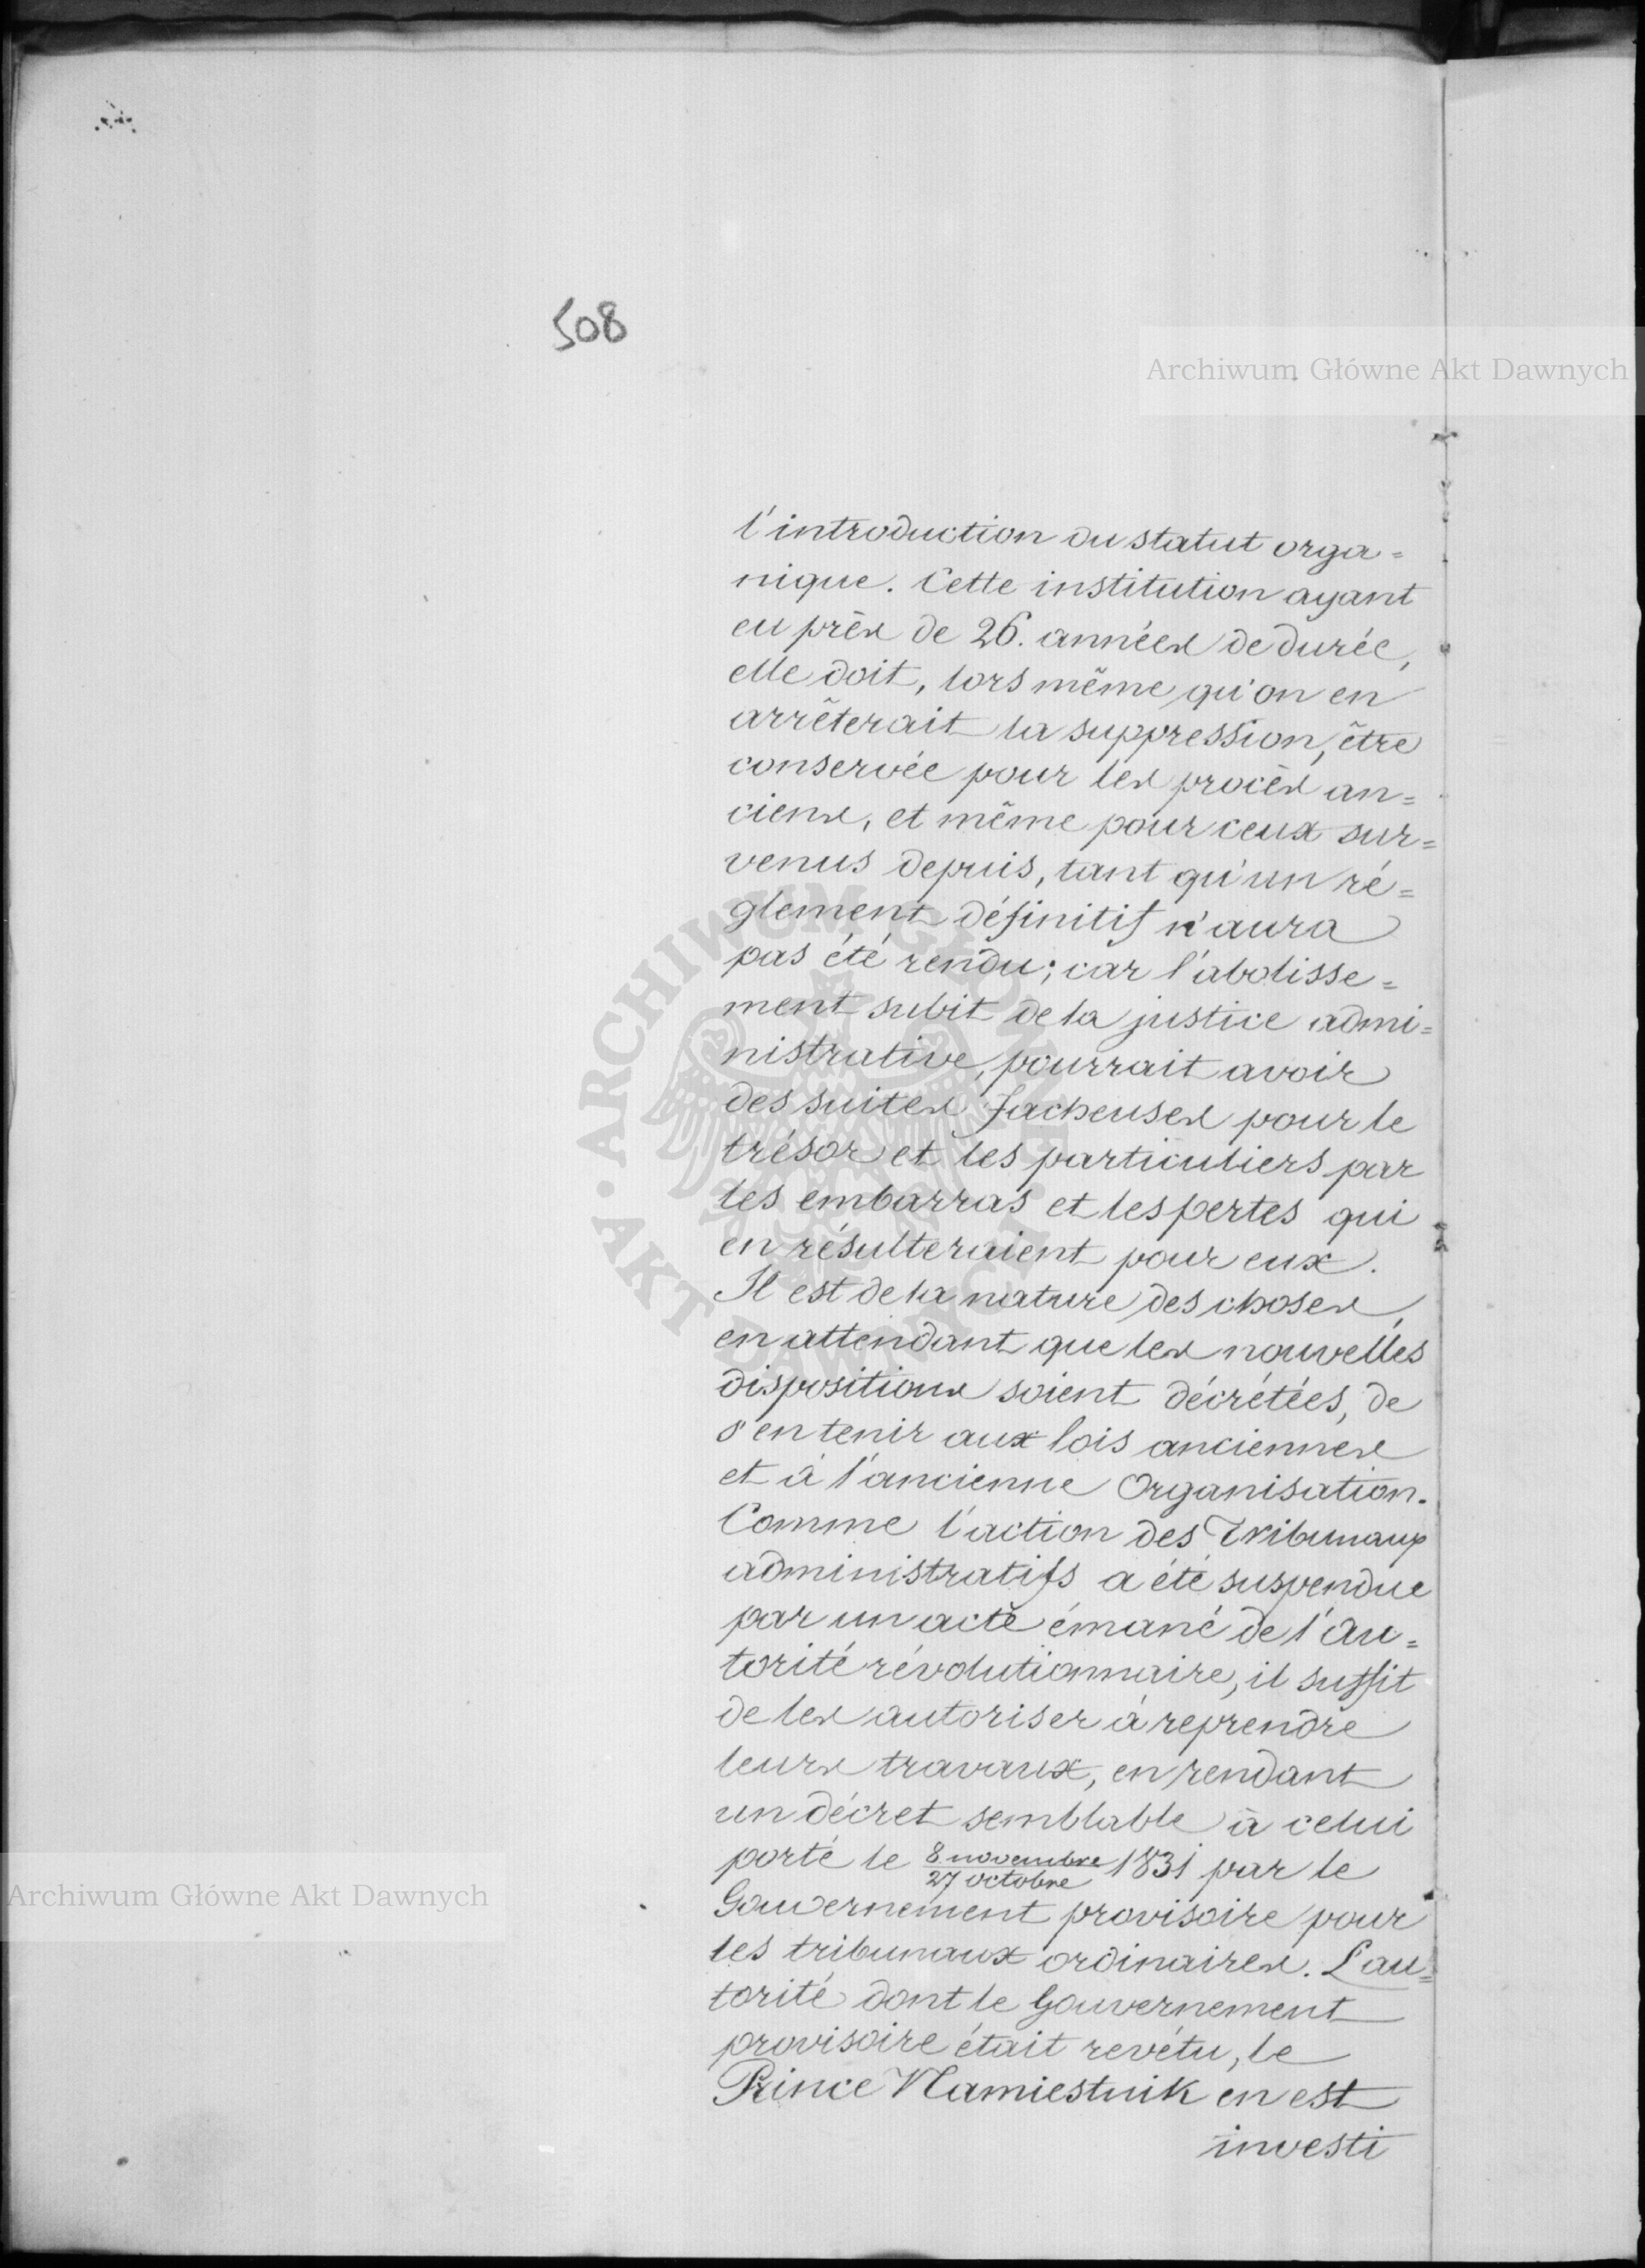 508
Archiwum Główne Akt Dawnych
l'introduction du statut orga=
nique. Cette institution ayant
eu près de 26. années de durée,
elle doit, lors même qu'on en
arrêterait la suppression, être
conservée pour les procès an=
ciens, et même pour ceux sur=
venus depuis, tant qu'un ré=
glement définitif n'aura
pas été rendu; car l'abolisse=
ment subit de la justice admi=
nistrative, pourrait avoir
des suites facheuses pour le
trésor et les particuliers par
les embarras et les pertes qui
en résulteraient pour eux.
Il est de la nature des choses,
en attendant que les nouvelles
dispositions soient décrétées, de
s'en tenir aux lois anciennes
et à l'ancienne Organisation.
Comme l'action des Tribunaux
administratifs a été suspendue
par un acte émané de l'Au=
torité révolutionnaire, il suffit
de les autoriser à reprendre
leurs travaux, en rendant
un décret semblable à celui
porté le 8 novembre/27 octobre 1831 par le
Gouvernement provisoire pour
les tribunaux ordinaires. L'au=
torité dont le Gouvernement
provisoire était revétu, le
Prince Namiestnik en est
investi
Archiwum Główne Akt Dawnych
ARCHIWUM GŁÓWNE · AKT DAWNYCH ·